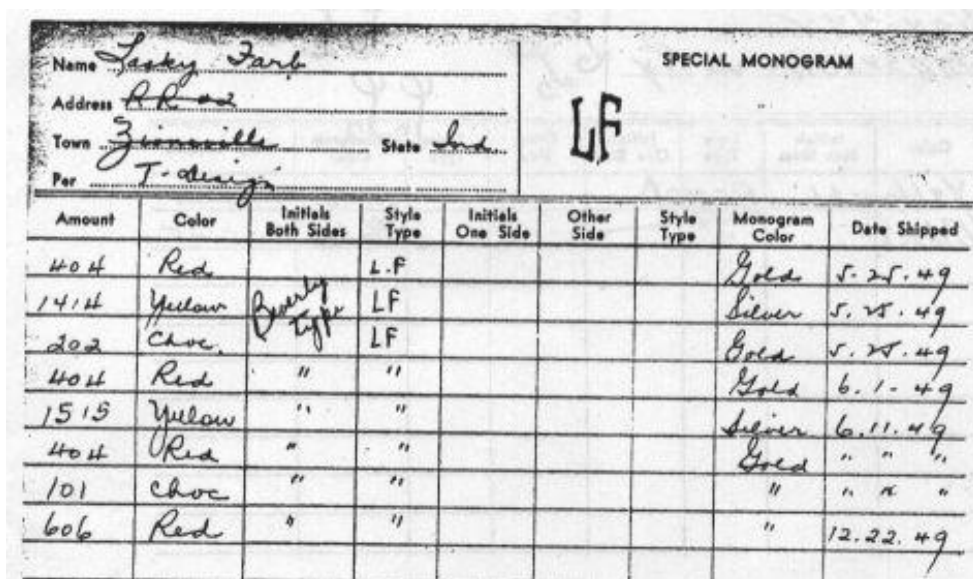 Name Lasky Farb
SPECIAL MONOGRAM
Address R R #2
LF
Town Zionsville State Ind.
Per T-design
Amount Color Initials Both Sides Style Type Initials One Side Other Side Style Type Monogram Color Date Shipped
404 Red L.F Gold 5.25.49
1414 Yellow Beverly Type LF Silver 5.25.49
202 Choc. LF Gold 5.25.49
404 Red " " Gold 6.1-49
1515 Yellow " " Silver 6.11.49
404 Red " " Gold " " "
101 Choc " " " " " "
606 Red " " " 12.22.49